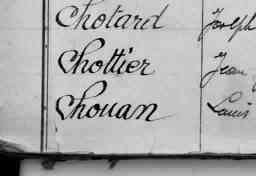 Chotard Joseph
Chottier Jean
Chouan Louis